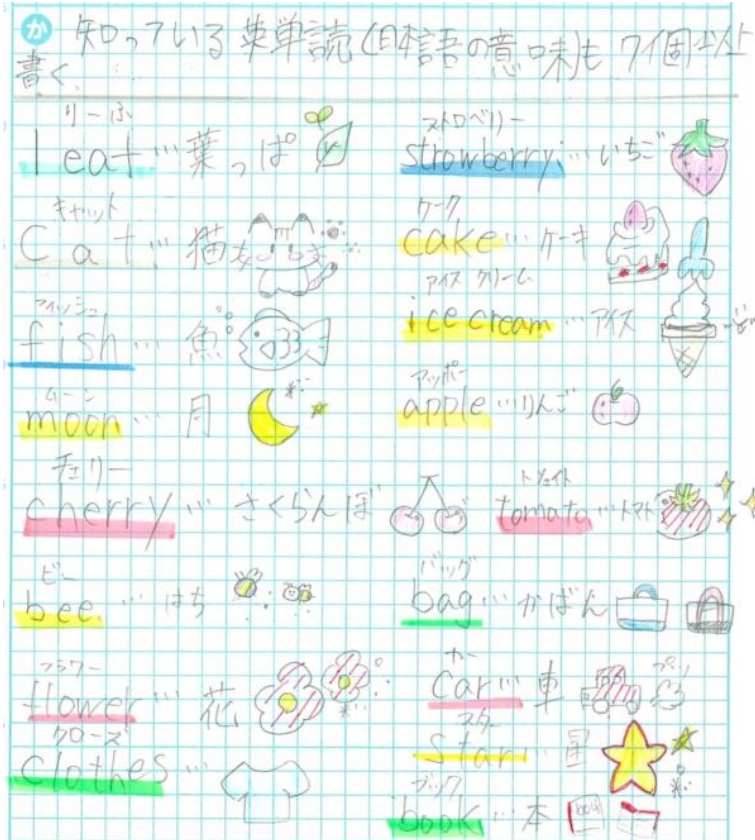 か 知っている英単読(日本語の意味)も 7個以上
書く
りーふ
leat…葉っぱ
キャット
Cat…猫
フィッシュ
fish…魚
ムーン
moon…月
チェリー
cherry…さくらんぼ
ビー
bee…はち
フラワー
flower…花
クローズ
clothes…
ストロベリー
strowberry…いちご
ケーク
cake…ケーキ
アイス クリーム
ice cream…アイス
アッポー
apple…りんご
トメイト
tomato…トマト
バッグ
bag…かばん
カー
car…車
スター
star…星
ブック
book…本
book